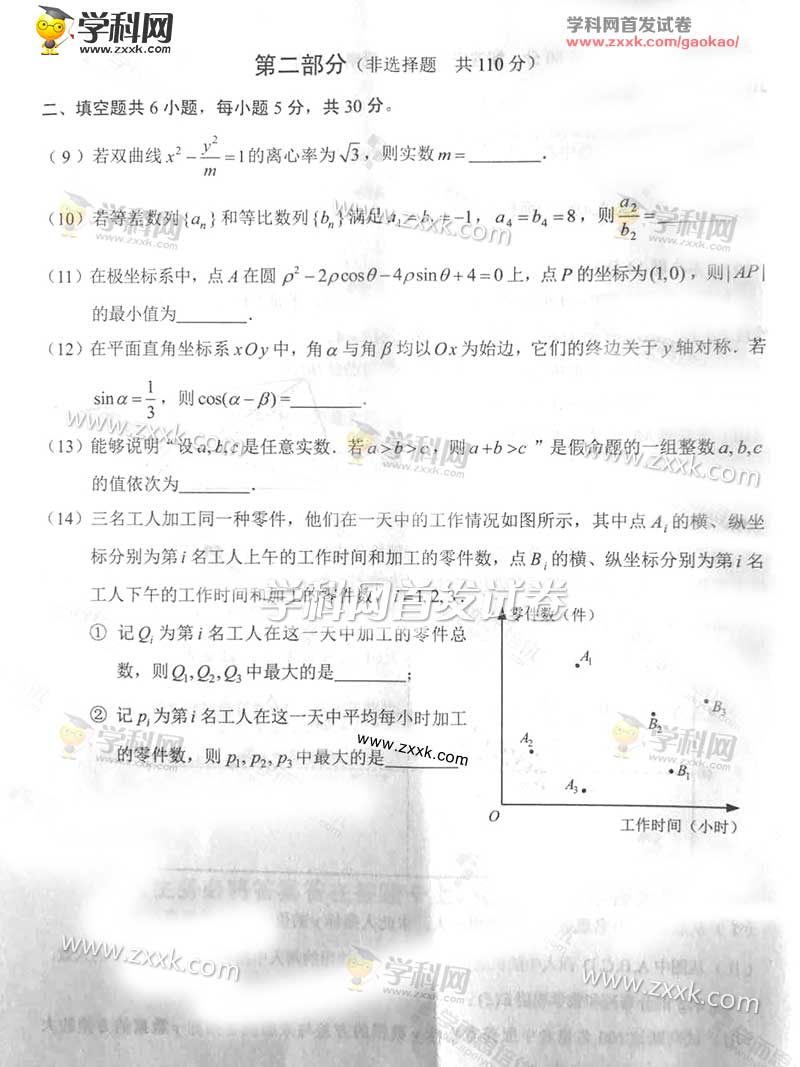 学科网
www.zxxk.com
学科网首发试卷
www.zxxk.com/gaokao/
第二部分（非选择题 共110分）
二、填空题共6小题，每小题5分，共30分。
（9）若双曲线 x² − y²/m = 1 的离心率为 √3，则实数 m = ________．
（10）若等差数列{aₙ}和等比数列{bₙ}满足 a₁ = b₁ = −1，a₄ = b₄ = 8，则 a₂/b₂ = ________
（11）在极坐标系中，点 A 在圆 ρ² − 2ρcosθ − 4ρsinθ + 4 = 0 上，点 P 的坐标为(1,0)，则|AP|
的最小值为________．
（12）在平面直角坐标系 xOy 中，角 α 与角 β 均以 Ox 为始边，它们的终边关于 y 轴对称．若
sinα = 1/3，则 cos(α − β) = ________．
（13）能够说明“设 a,b,c 是任意实数．若 a > b > c，则 a + b > c ”是假命题的一组整数 a,b,c
的值依次为________．
（14）三名工人加工同一种零件，他们在一天中的工作情况如图所示，其中点 Aᵢ 的横、纵坐
标分别为第 i 名工人上午的工作时间和加工的零件数，点 Bᵢ 的横、纵坐标分别为第 i 名
工人下午的工作时间和加工的零件数，i = 1,2,3.
① 记 Qᵢ 为第 i 名工人在这一天中加工的零件总
数，则 Q₁,Q₂,Q₃ 中最大的是________；
② 记 pᵢ 为第 i 名工人在这一天中平均每小时加工
的零件数，则 p₁, p₂, p₃ 中最大的是________
零件数（件）
A₁
B₃
B₂
A₂
B₁
A₃
O
工作时间（小时）
学科网首发试卷
www.zxxk.com